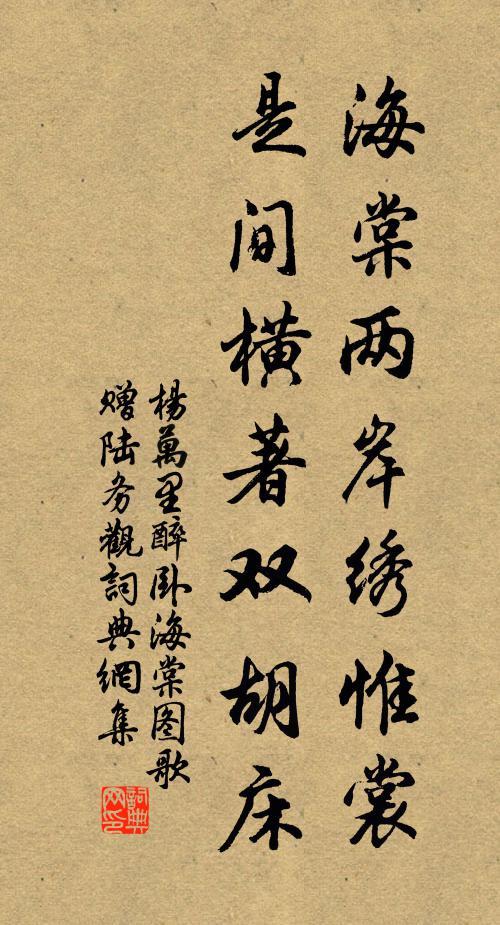 海棠两岸绣惟裳
是间横著双胡床
杨萬里醉卧海棠图歌
赠陆务觀詞典網集
詞典
网印